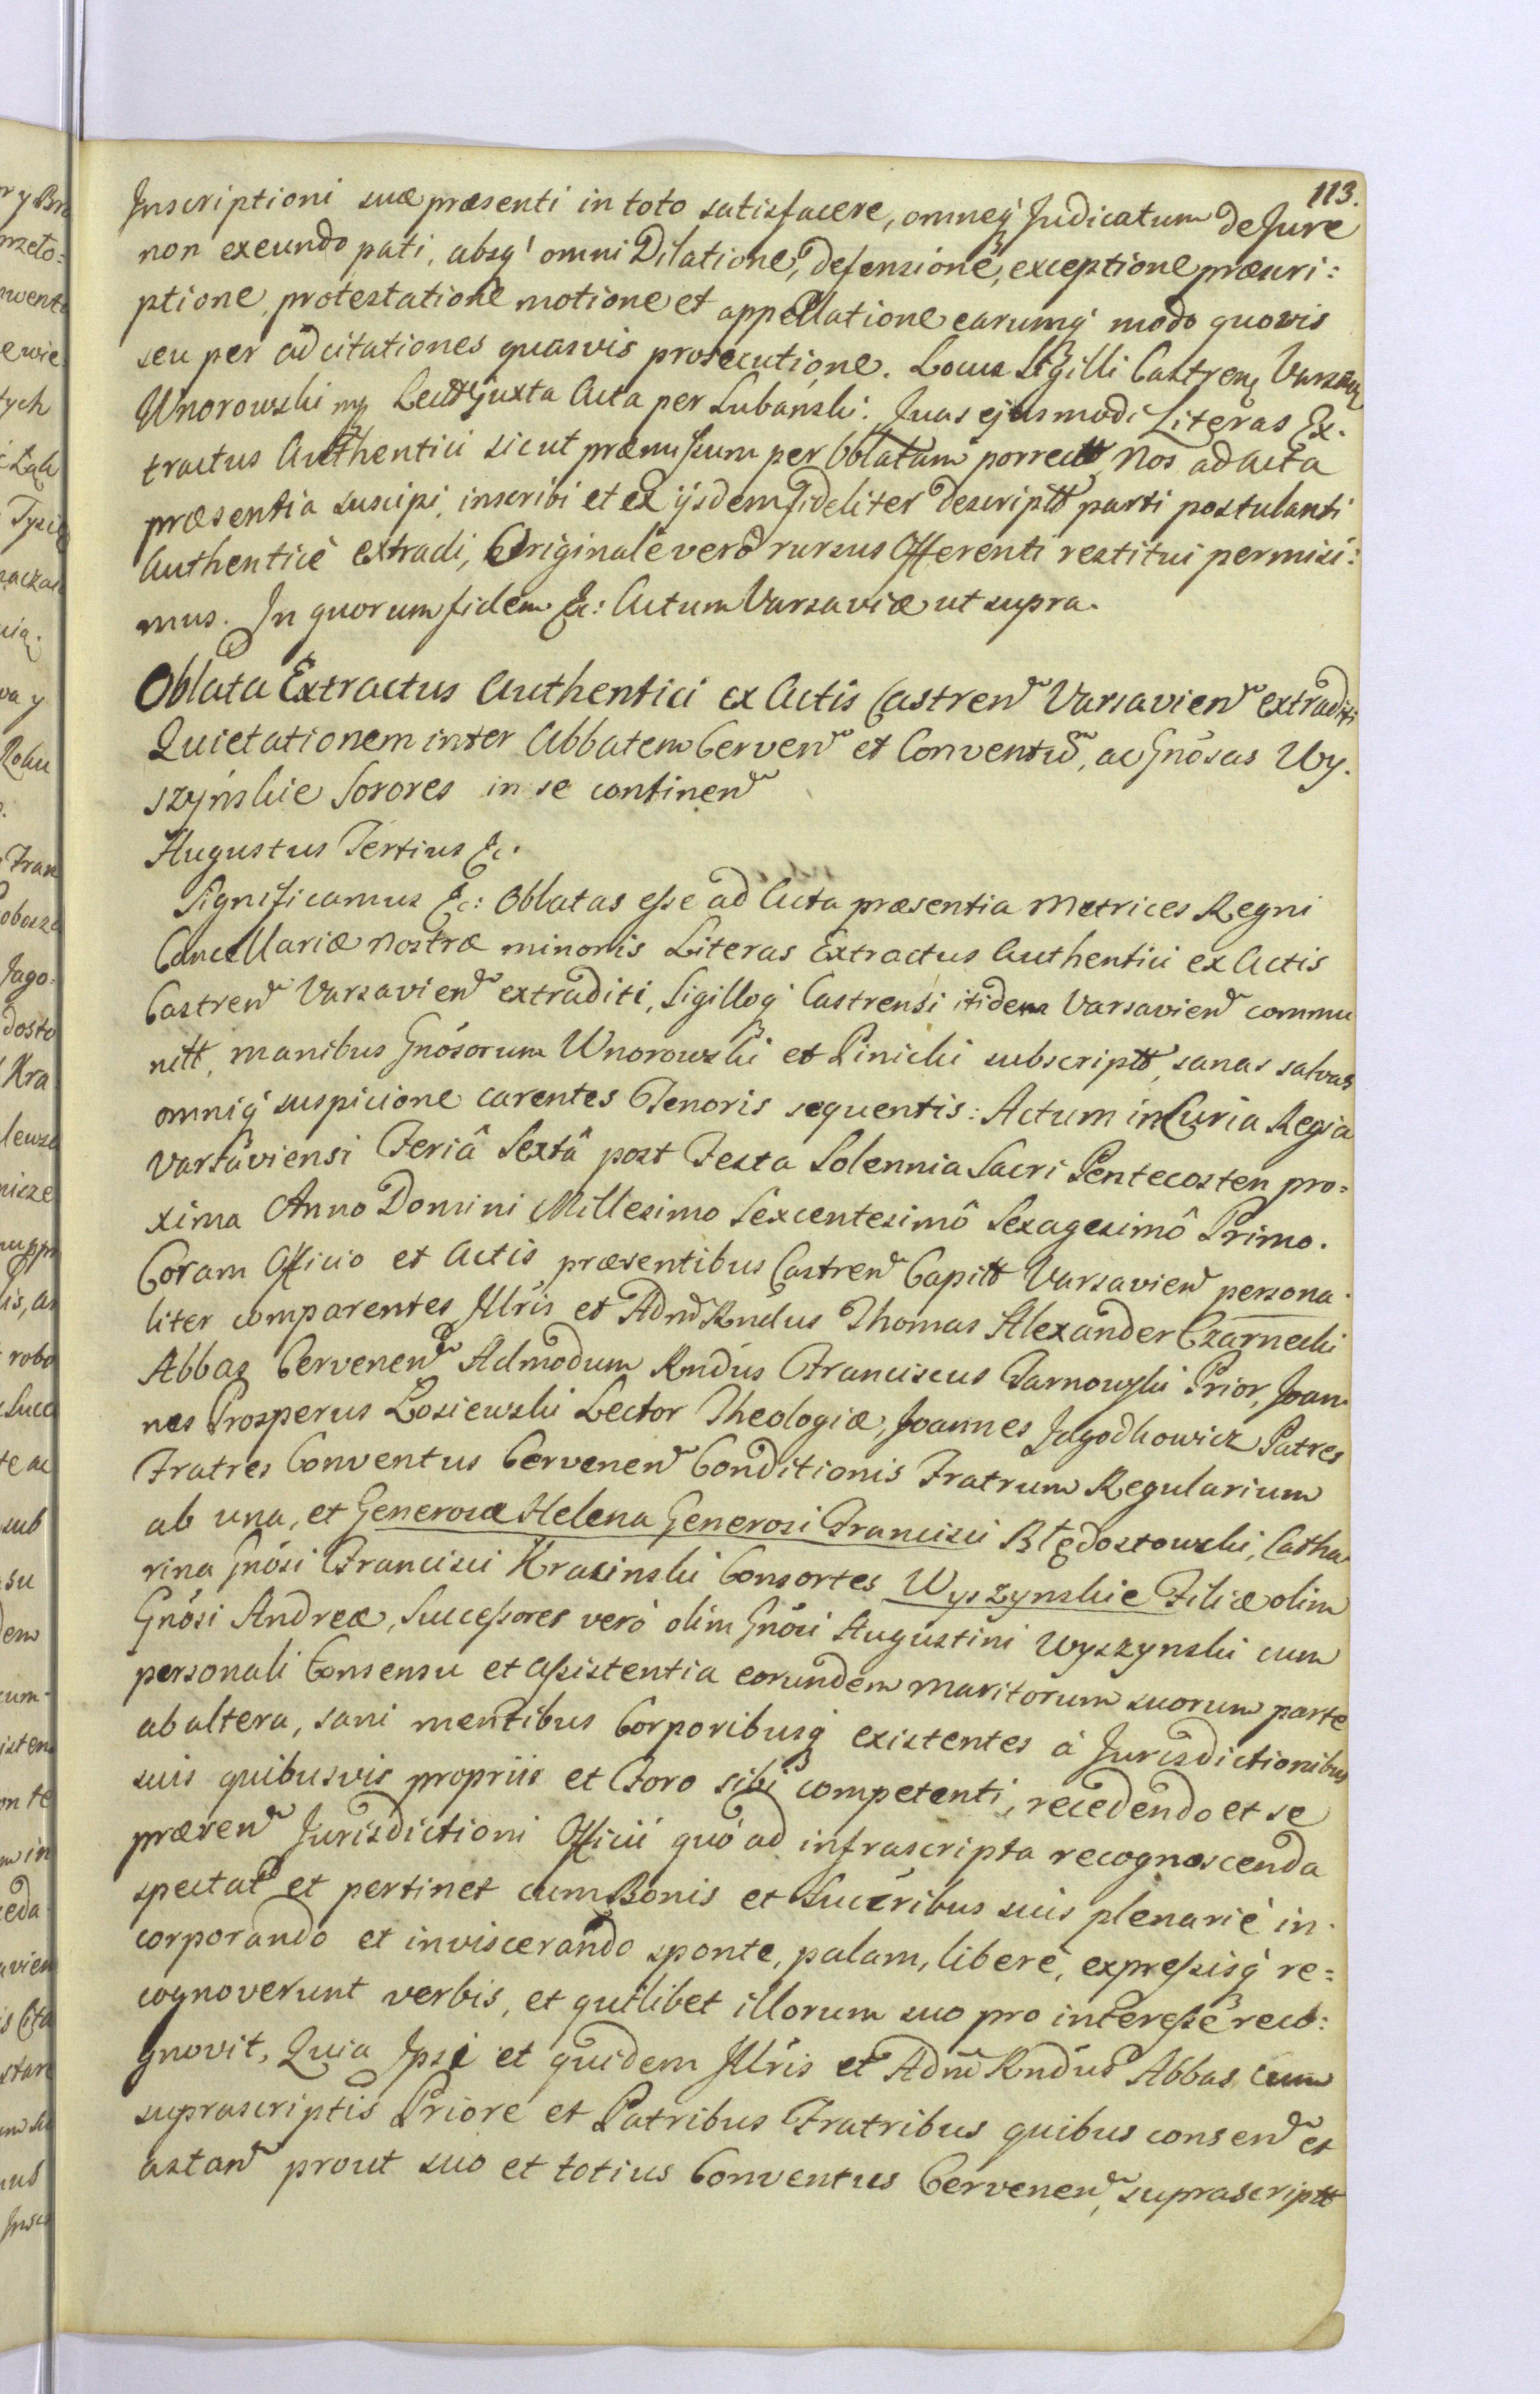 113.
Inscriptioni suæ præsenti in toto satisfacere, omneq́ Judicatum de Jure
non exeundo pati, absq́ omni Dilatione, defensione, exceptione præscri:
ptione, protestatione motione et appellatione earumq́ modo quovis
seu per adcitationes quasvis prosecutione. Locus Sigilli Castren Varsav
Wnorowski mp Lectt juxta Acta per Lubański. Quas ejusmodi Literas Ex.
tractus Authentici sicut præmissum per Oblatam porrectt, Nos ad acta
præsentia suscipi, inscribi et ex ijsdem fideliter descriptt parti postulanti
Authenticè extradi, Originale verò rursus Offerenti restitui permisi:
mus. In quorum fidem &c: Actum Varsaviæ ut supra.
Oblata Extractus Authentici ex Actis Castren Varsavien extraditi
Quietationem inter Abbatem Cerven et Conventū, ac Gnõsas Wy.
szyńskie Sorores in se continen
Augustus Tertius &c.
Significamus &c: Oblatas esse ad Acta præsentia Metrices Regni
Cancellariæ Nostræ minoris Literas Extractus Authentici ex Actis
Castren Varsavien extraditi, Sigilloq́ Castrensi itidem Varsavien commu
nitt, manibus Gnõsorum Wnorowski et Pinicki subscriptt, sanas salvas
omniq́ suspicione carentes Tenoris sequentis: Actum in Curia Regia
Varsaviensi Feriâ Sextâ post Festa Solennia Sacri Pentecosten pro=
xima Anno Domini Millesimo Sexcentesimô Sexagesimô Primo.
Coram Officio et Actis præsentibus Castren Capitt Varsavien persona-
liter comparentes Illris et Adm̃ Rndus Thomas Alexander Czarnecki
Abbas Cervenen Admodum Rndus Franciscus Tarnowski Prior, Joan
nes Prosperus Łosiewski Lector Theologiæ, Joannes Jagodkowicz Patres
Fratres Conventus Cervenen Conditionis Fratrum Regularium
ab una, et Generosæ Helena Generosi Francisci Błędostowski, Catha
rina Gnõsi Francisci Krasinski Consortes Wyszynskie Filiæ olim
Gnõsi Andreæ, Successores verò olim Gnõsi Augustini Wyszynski cum
personali Consensu et assistentia eorundem maritorum suorum parte
ab altera, sani mentibus Corporibusq́ existentes à Jurisdictionibus
suis quibusvis propriis et Foro sibi competenti, recedendo et se
præsen Jurisdictioni Officii quò ad infrascripta recognoscenda
spectat et pertinet cum Bonis et Succribus suis plenariè in-
corporando et inviscerando sponte, palam, liberè, expressisq́ re=
cognoverunt verbis, et quilibet illorum suo pro interesse reco:
gnovit, Quia Ipsi et quidem Illris et Adm̃ Rndus Abbas cum
suprascriptis Priore et Patribus Fratribus quibus consen et
astan prout suo et totius Conventus Cervenen, suprascriptt